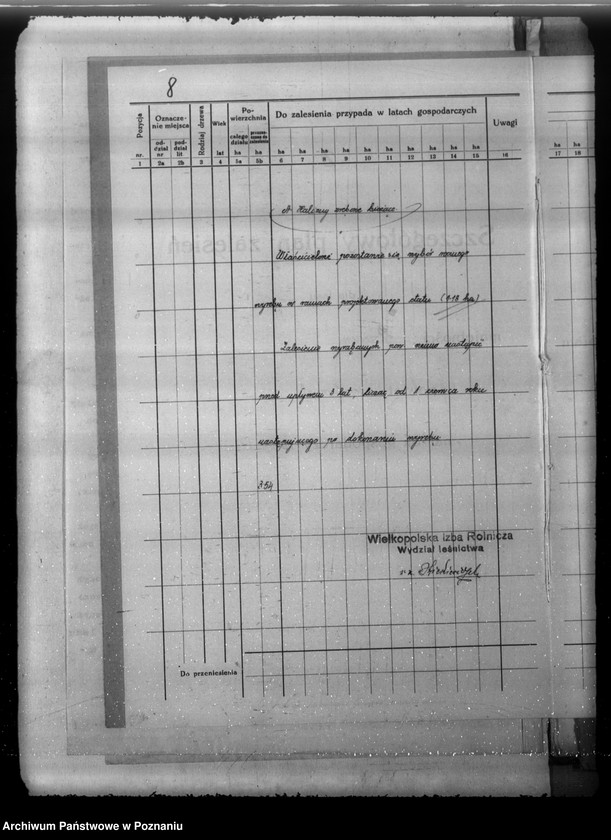 8
Pozycja
Oznacze-
nie miejsca
Rodzaj drzewa
Wiek
Po-
wierzchnia
Do zalesienia przypada w latach gospodarczych
Uwagi
od-
dział
nr
pod-
dział
lit
całego
działu
nr.
lat
ha ha ha ha ha ha ha ha ha ha ha ha
ha ha
1 2a 2b 3 4 5a 5b 6 7 8 9 10 11 12 13 14 15 16
17 18
A. Haliny
Właścicielowi pozostawia się wybór rocznego
wyrębu w ramach projektowanego etatu (1-18 ha)
Zalesienie wyrąbanych pow. winno nastąpić
przed upływem 3 lat, licząc od 1 czerwca roku
następującego po dokonaniu wyrębu
3.54
Wielkopolska Izba Rolnicza
Wydział leśnictwa
Do przeniesienia
Archiwum Państwowe w Poznaniu